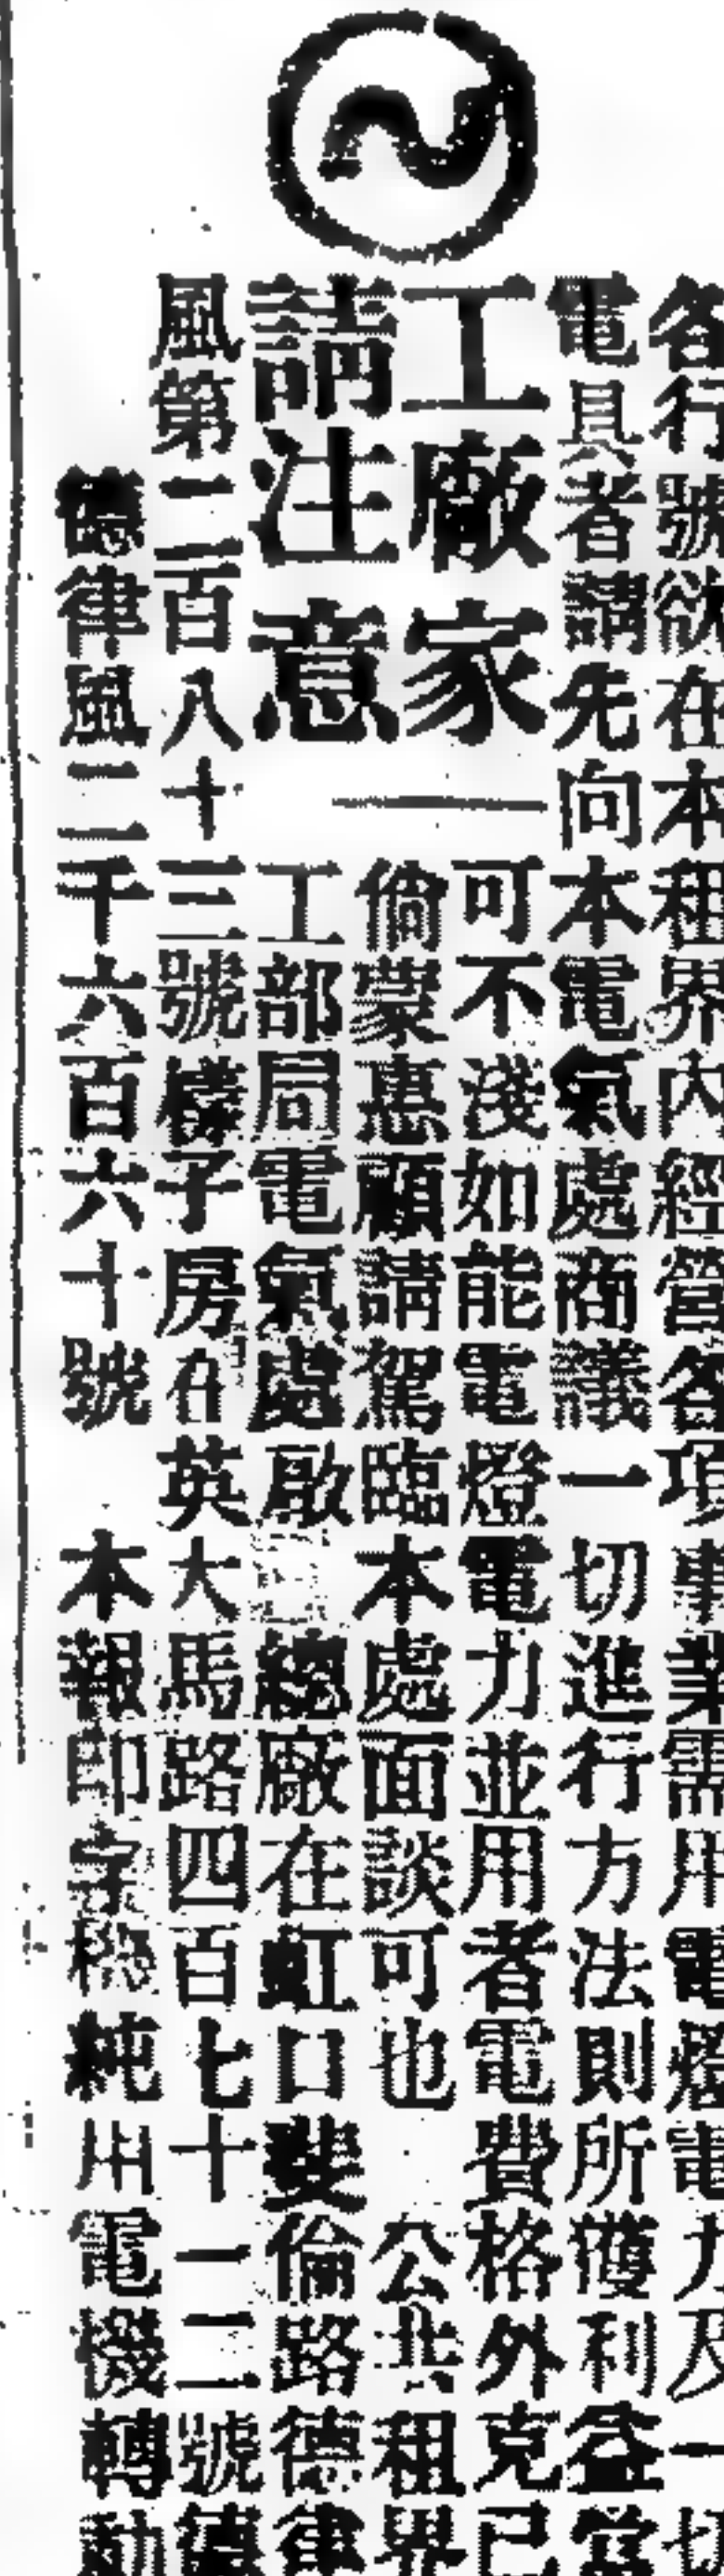 各行號欲在本租界內經營各項事業需用電燈電力及一切
電具者請先向本電氣處商議一切進行方法則所獲利益當
可不淺如能電燈電力並用者電費格外克已
工廠家
請注意
倘蒙惠顧請駕臨本處面談可也 公共租界
工部局電氣處啟 總廠在虹口斐倫路德律
風第二百八十三號樣子房在英大馬路四百七十一二號德
律風二千六百六十號 本報印字機純用電機轉動